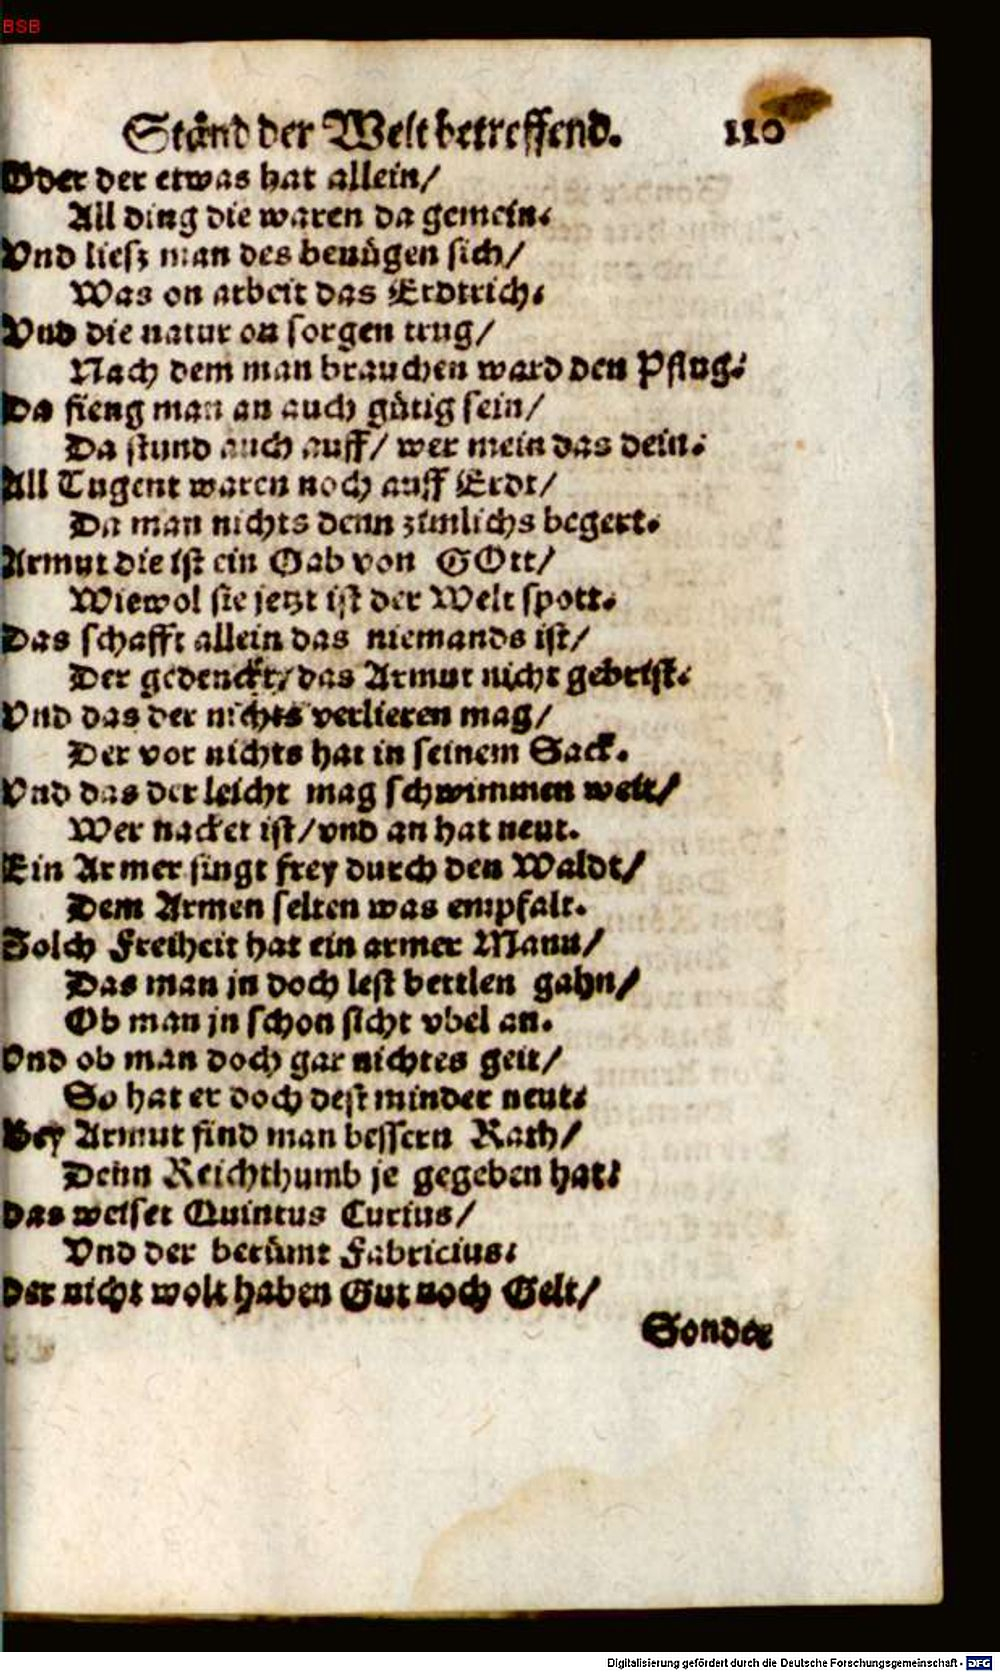 BSB
Ständ der Welt betreffend. 110
Oder der etwas hat allein/
All ding die waren da gemein.
Vnd liesz man des benügen sich/
Was on arbeit das Erdtrich.
Vnd die natur on sorgen trug/
Nach dem man brauchen ward den Pflug.
Da fieng man an auch gütig sein/
Da stund auch auff/ wer mein das dein.
All Tugent waren noch auff Erdt/
Da man nichts denn zimlichs begert.
Armut die ist ein Gab von GOtt/
Wiewol sie jetzt ist der Welt spott.
Das schafft allein das niemands ist/
Der gedenckt/ das Armut nicht gebrist.
Vnd das der nichts verlieren mag/
Der vor nichts hat in seinem Sack.
Vnd das der leicht mag schwimmen weit/
Wer nacket ist/ vnd an hat neut.
Ein Armer singt frey durch den Waldt/
Dem Armen selten was empfalt.
Solch Freiheit hat ein armer Mann/
Das man jn doch lest bettlen gahn/
Ob man jn schon sicht vbel an.
Vnd ob man doch gar nichtes geit/
So hat er doch dest minder neut.
Bey Armut find man bessern Rath/
Denn Reichthumb je gegeben hat.
Das weiset Quintus Curtius/
Vnd der berümt Fabricius.
Der nicht wolt haben Gut noch Gelt/
Sonder
Digitalisierung gefördert durch die Deutsche Forschungsgemeinschaft - DFG